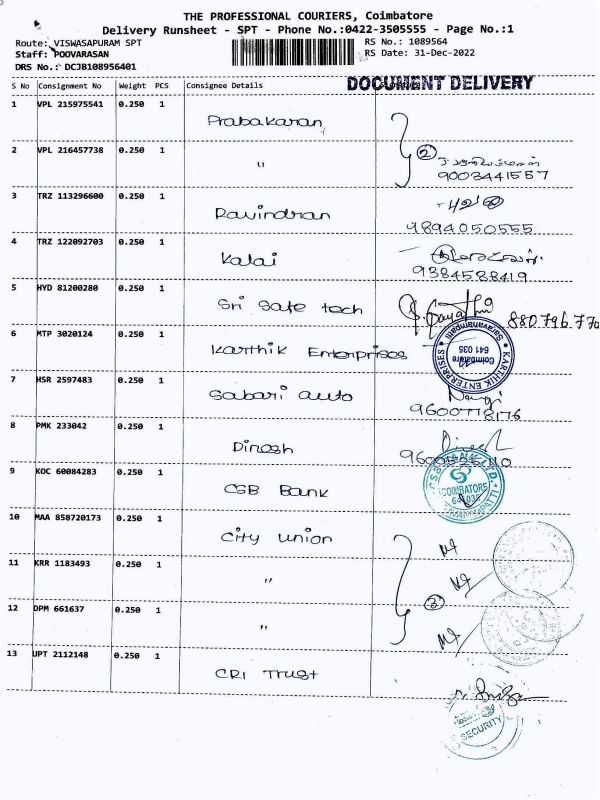 THE PROFESSIONAL COURIERS, Coimbatore
Delivery Runsheet - SPT - Phone No.:0422-3505555 - Page No.:1
Route: VISWASAPURAM SPT
RS No.: 1089564
Staff: POOVARASAN
RS Date: 31-Dec-2022
DRS No.: DCJB108956401
DOCUMENT DELIVERY
S No Consignment No Weight PCS Consignee Details
1 VPL 215975541 0.250 1 Prabakaran
2 VPL 216457738 0.250 1 " 2
9003441557
3 TRZ 113296600 0.250 1 Ravindran
9894050555
4 TRZ 122092703 0.250 1 Kalai
9384588419
5 HYD 81200280 0.250 1 Sri Safe tech
6 MTP 3020124 0.250 1 Karthik Enterprises
KARTHIK ENTERPRISES Saravanampatti Coimbatore 641 035
7 HSR 2597483 0.250 1 Sabari auto
8 PMK 233042 0.250 1 Dinesh
9 KOC 60084283 0.250 1 CSB Bank
CSB BANK LTD. COIMBATORE
10 MAA 858720173 0.250 1 City union
11 KRR 1183493 0.250 1 "
12 DPM 661637 0.250 1 " 3
13 UPT 2112148 0.250 1 CRI Trust
SECURITY